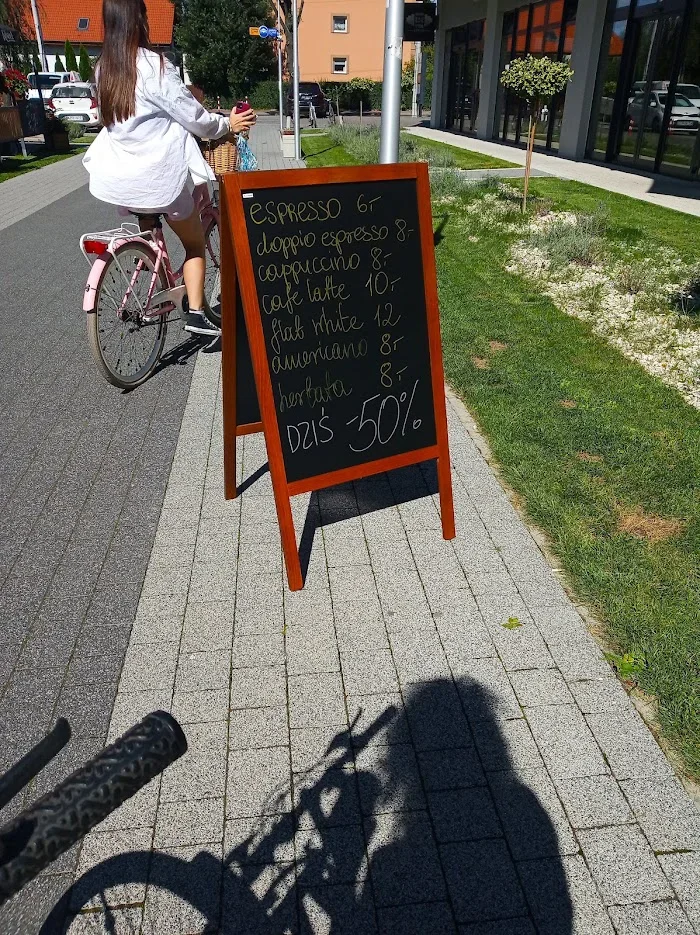 espresso 6,-
doppio espresso 8,-
cappuccino 8,-
cafe latte 10,-
flat white 12
americano 8,-
herbata 8,-
DZIŚ -50%